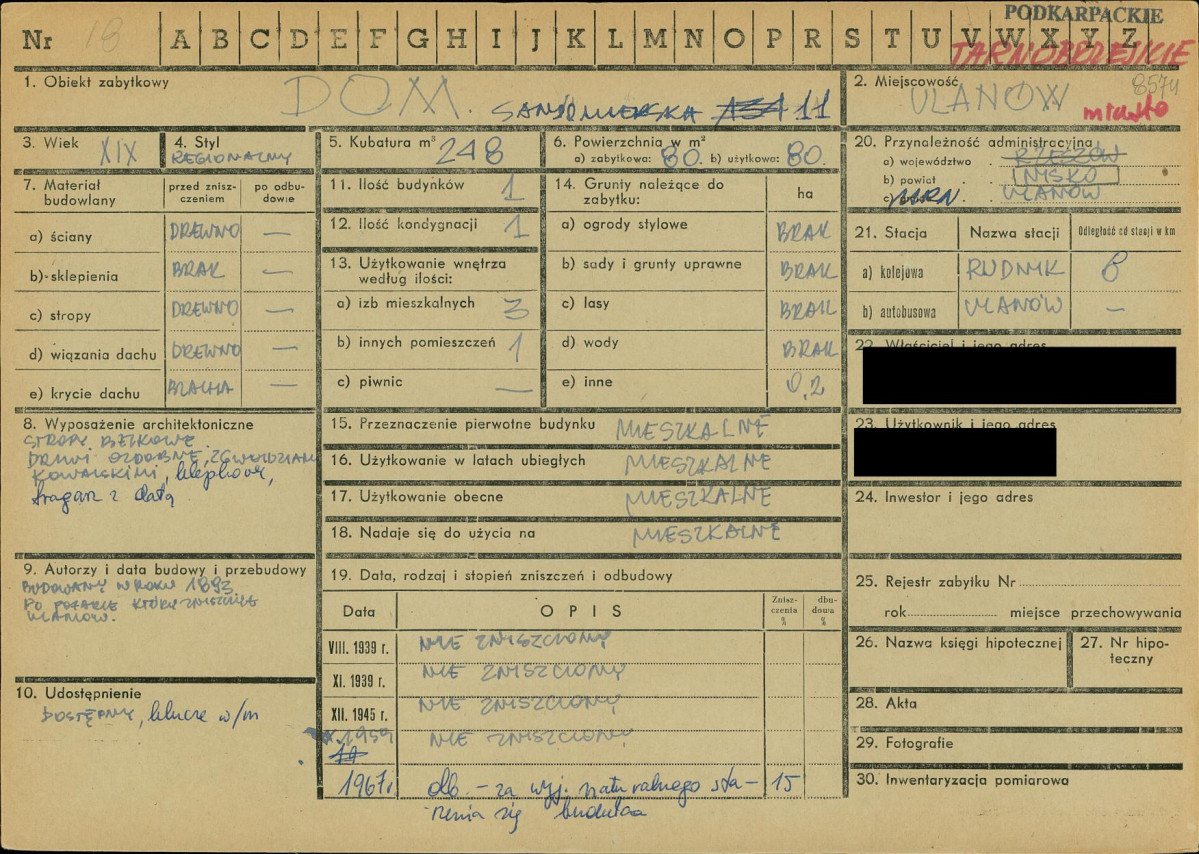 PODKARPACKIE
Nr 18 A B C D E F G H I J K L M N O P R S T U V W X Y Z
TARNOBRZESKIE
1. Obiekt zabytkowy
DOM. SANDOMIERSKA 134 11
2. Miejscowość 8574
ULANÓW
miasto
3. Wiek XIX
4. Styl
REGIONALNY
5. Kubatura m³ 248
6. Powierzchnia w m²
a) zabytkowa: 80. b) użytkowa: 80.
20. Przynależność administracyjna
a) województwo . RZESZÓW
b) powiat . . NISKO
c) MRN . ULANÓW
7. Materiał budowlany
przed znisz-
czeniem
po odbu-
dowie
a) ściany DREWNO —
b) sklepienia BRAK —
c) stropy DREWNO —
d) wiązania dachu DREWNO —
e) krycie dachu BLACHA —
11. Ilość budynków 1
12. Ilość kondygnacji 1
13. Użytkowanie wnętrza
według ilości:
a) izb mieszkalnych 3
b) innych pomieszczeń 1
c) piwnic —
14. Grunty należące do
zabytku:
ha
a) ogrody stylowe BRAK
b) sady i grunty uprawne BRAK
c) lasy BRAK
d) wody BRAK
e) inne 0,2
21. Stacja Nazwa stacji Odległość od stacji w km
a) kolejowa RUDNIK 8
b) autobusowa ULANÓW —
22. Właściciel i jego adres
23. Użytkownik i jego adres
24. Inwestor i jego adres
8. Wyposażenie architektoniczne
STROPY BELKOWE
DRZWI OZDOBNE, Z GWOŹDZIAMI
KOWALSKIMI, klepkowe,
tragarz z datą
15. Przeznaczenie pierwotne budynku MIESZKALNE
16. Użytkowanie w latach ubiegłych MIESZKALNE
17. Użytkowanie obecne MIESZKALNE
18. Nadaje się do użycia na MIESZKALNE
9. Autorzy i data budowy i przebudowy
BUDOWANY W ROKU 1893
PO POŻARZE KTÓRY ZNISZCZYŁ
ULANÓW.
10. Udostępnienie
DOSTĘPNY, klucze w/m
19. Data, rodzaj i stopień zniszczeń i odbudowy
Data OPIS
Znisz-
czenia
%
dbu-
dowa
%
VIII. 1939 r. NIE ZNISZCZONY
XI. 1939 r. NIE ZNISZCZONY
XII. 1945 r. NIE ZNISZCZONY
1959 NIE ZNISZCZONY
1967r. db. – za wyj. naturalnego sta- 15
rzenia się budulca
25. Rejestr zabytku Nr
rok miejsce przechowywania
26. Nazwa księgi hipotecznej
27. Nr hipo-
teczny
28. Akta
29. Fotografie
30. Inwentaryzacja pomiarowa